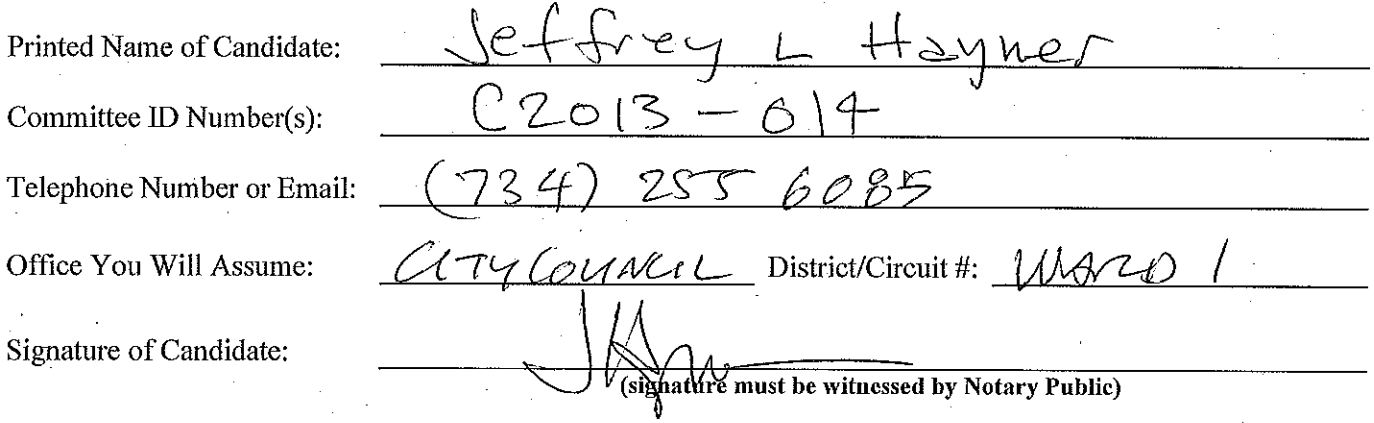 Printed Name of Candidate: Jeffrey L Hayner
Committee ID Number(s): C2013-014
Telephone Number or Email: (734) 255 6085
Office You Will Assume: CITY COUNCIL District/Circuit #: WARD 1
Signature of Candidate:
(signature must be witnessed by Notary Public)